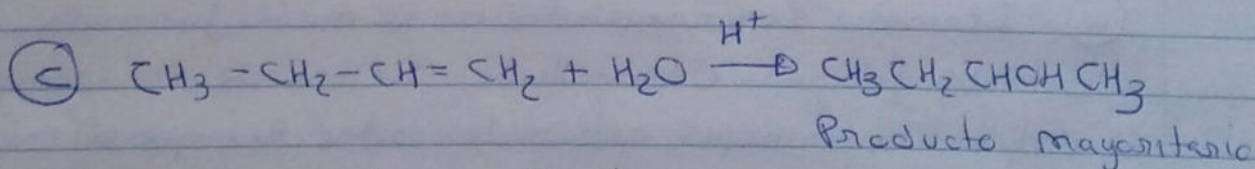 c CH₃ - CH₂ - CH = CH₂ + H₂O →(H⁺) CH₃ CH₂ CHOH CH₃
Producto mayoritario